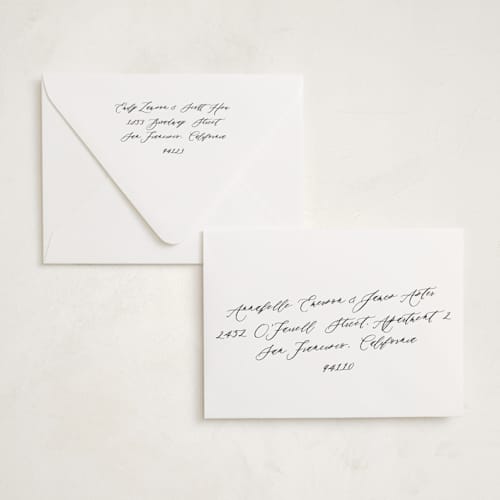 Carly Lennon & Scott Hou
1253 Broadway Street
San Francisco, California
94123
Annabelle Emerson & James Apter
2452 O'Farrell Street, Apartment 2
San Francisco, California
94110